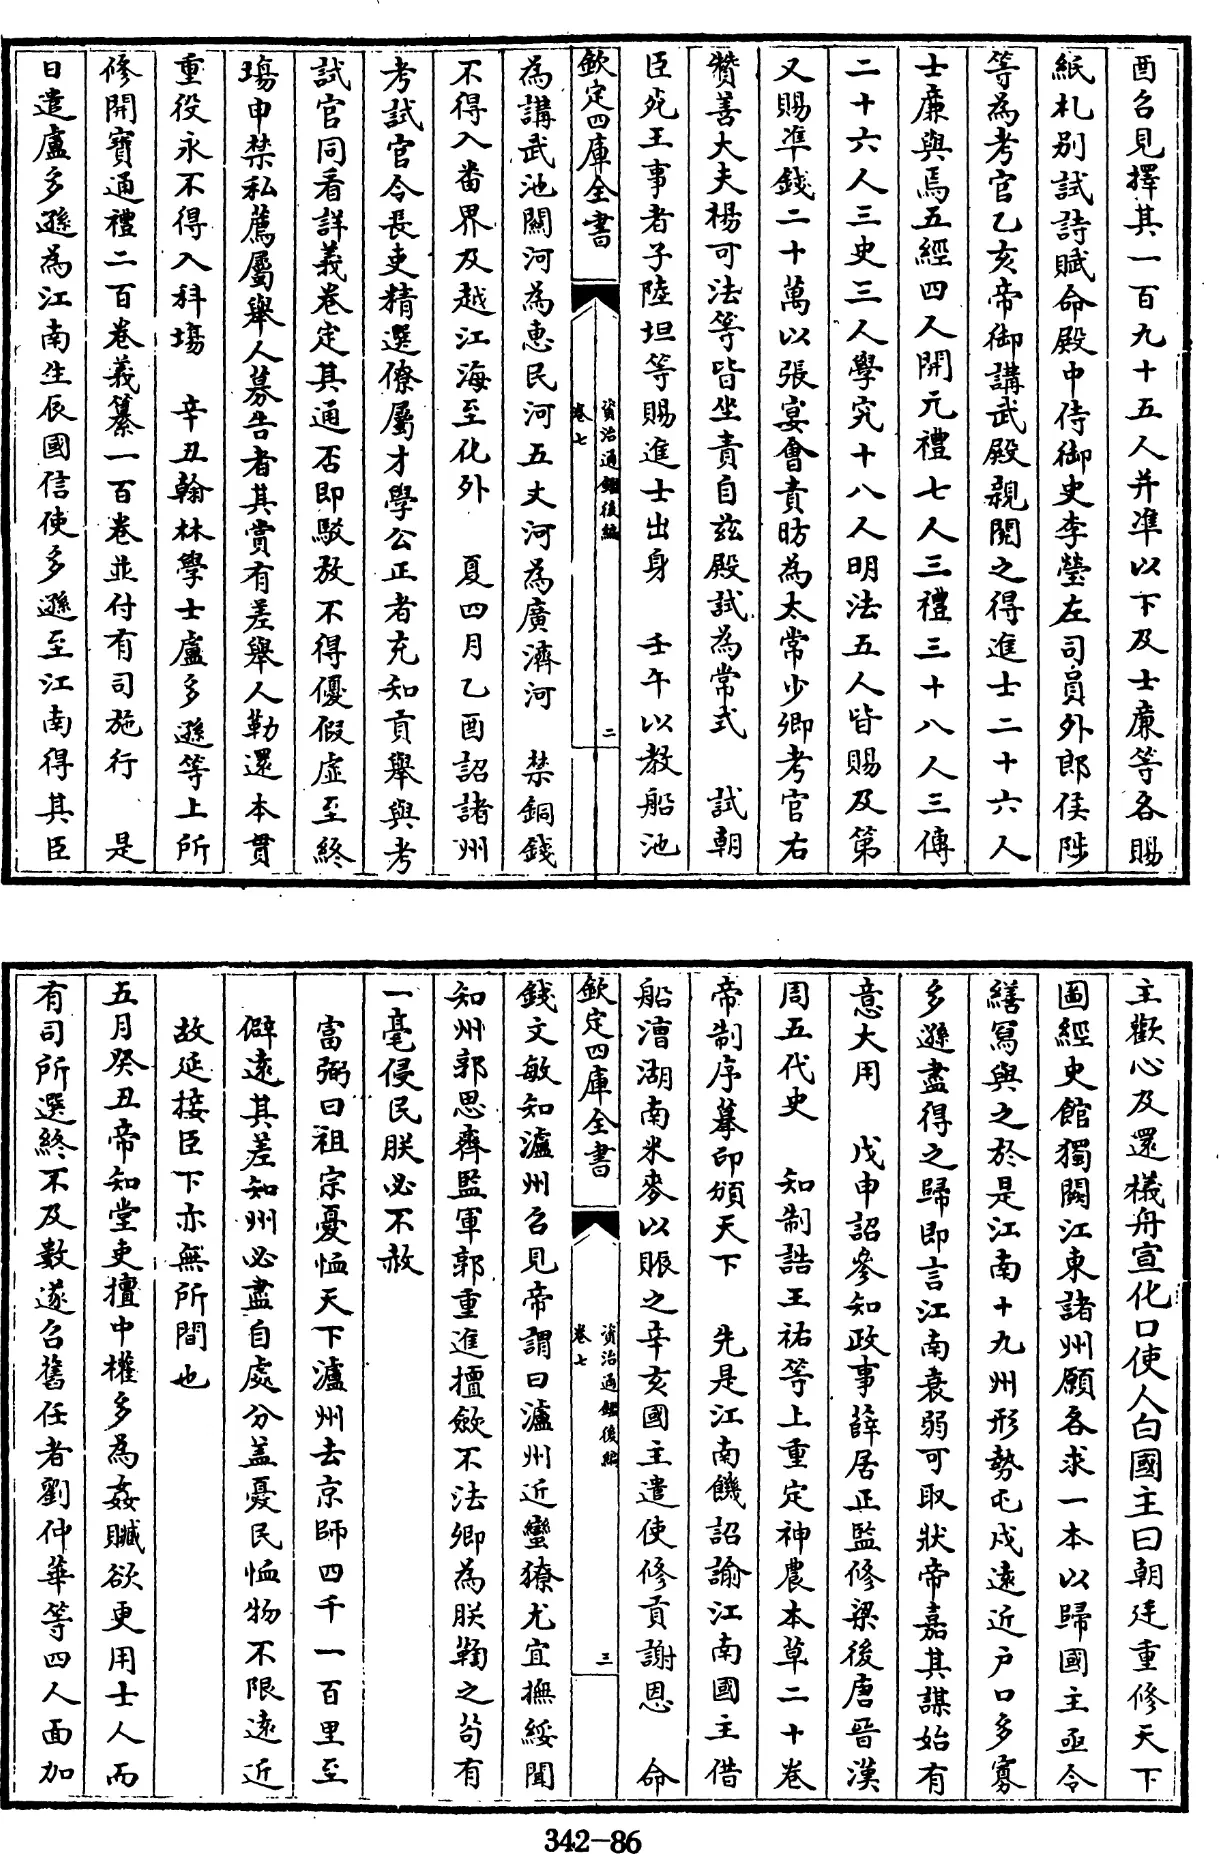 酉召見擇其一百九十五人并準以下及士廉等各賜
紙札别試詩賦命殿中侍御史李瑩左司員外郎侯陟
等為考官乙亥帝御講武殿親閲之得進士二十六人
士廉與焉五經四人開元禮七人三禮三十八人三傳
二十六人三史三人學究十八人明法五人皆賜及第
又賜準錢二十萬以張宴會責昉為太常少卿考官右
贊善大夫楊可法等皆坐責自兹殿試為常式 試朝
臣死王事者子陸坦等賜進士出身 壬午以教船池
欽定四庫全書
資治通鑑後編
卷七
二
為講武池闗河為惠民河五丈河為廣濟河 禁銅錢
不得入畨界及越江海至化外 夏四月乙酉詔諸州
考試官令長吏精選僚屬才學公正者充知貢舉與考
試官同看詳義卷定其通否即駁放不得優假虛至終
場申禁私薦屬舉人募告者其賞有差舉人勒還本貫
重役永不得入科場 辛丑翰林學士盧多遜等上所
修開寶通禮二百卷義纂一百卷並付有司施行 是
日遣盧多遜為江南生辰國信使多遜至江南得其臣
主歡心及還檥舟宣化口使人白國主曰朝廷重修天下
圖經史館獨闕江東諸州願各求一本以歸國主亟令
繕寫與之於是江南十九州形勢屯戍遠近户口多寡
多遜盡得之歸即言江南衰弱可取狀帝嘉其謀始有
意大用 戊申詔參知政事薛居正監修梁後唐晉漢
周五代史 知制誥王祐等上重定神農本草二十卷
帝制序摹印頒天下 先是江南饑詔諭江南國主借
船漕湖南米麥以賑之辛亥國主遣使修貢謝恩 命
欽定四庫全書
資治通鑑後編
卷七
三
錢文敏知瀘州召見帝謂曰瀘州近蠻獠尤宜撫綏聞
知州郭思齊監軍郭重進擅歛不法卿為朕鞫之茍有
一毫侵民朕必不赦
富弼曰祖宗憂恤天下瀘州去京師四千一百里至
僻逺其差知州必盡自處分盖憂民恤物不限逺近
故延接臣下亦無所間也
五月癸丑帝知堂吏擅中權多為姦贓欲更用士人而
有司所選終不及數遂召舊任者劉仲華等四人面加
342-86